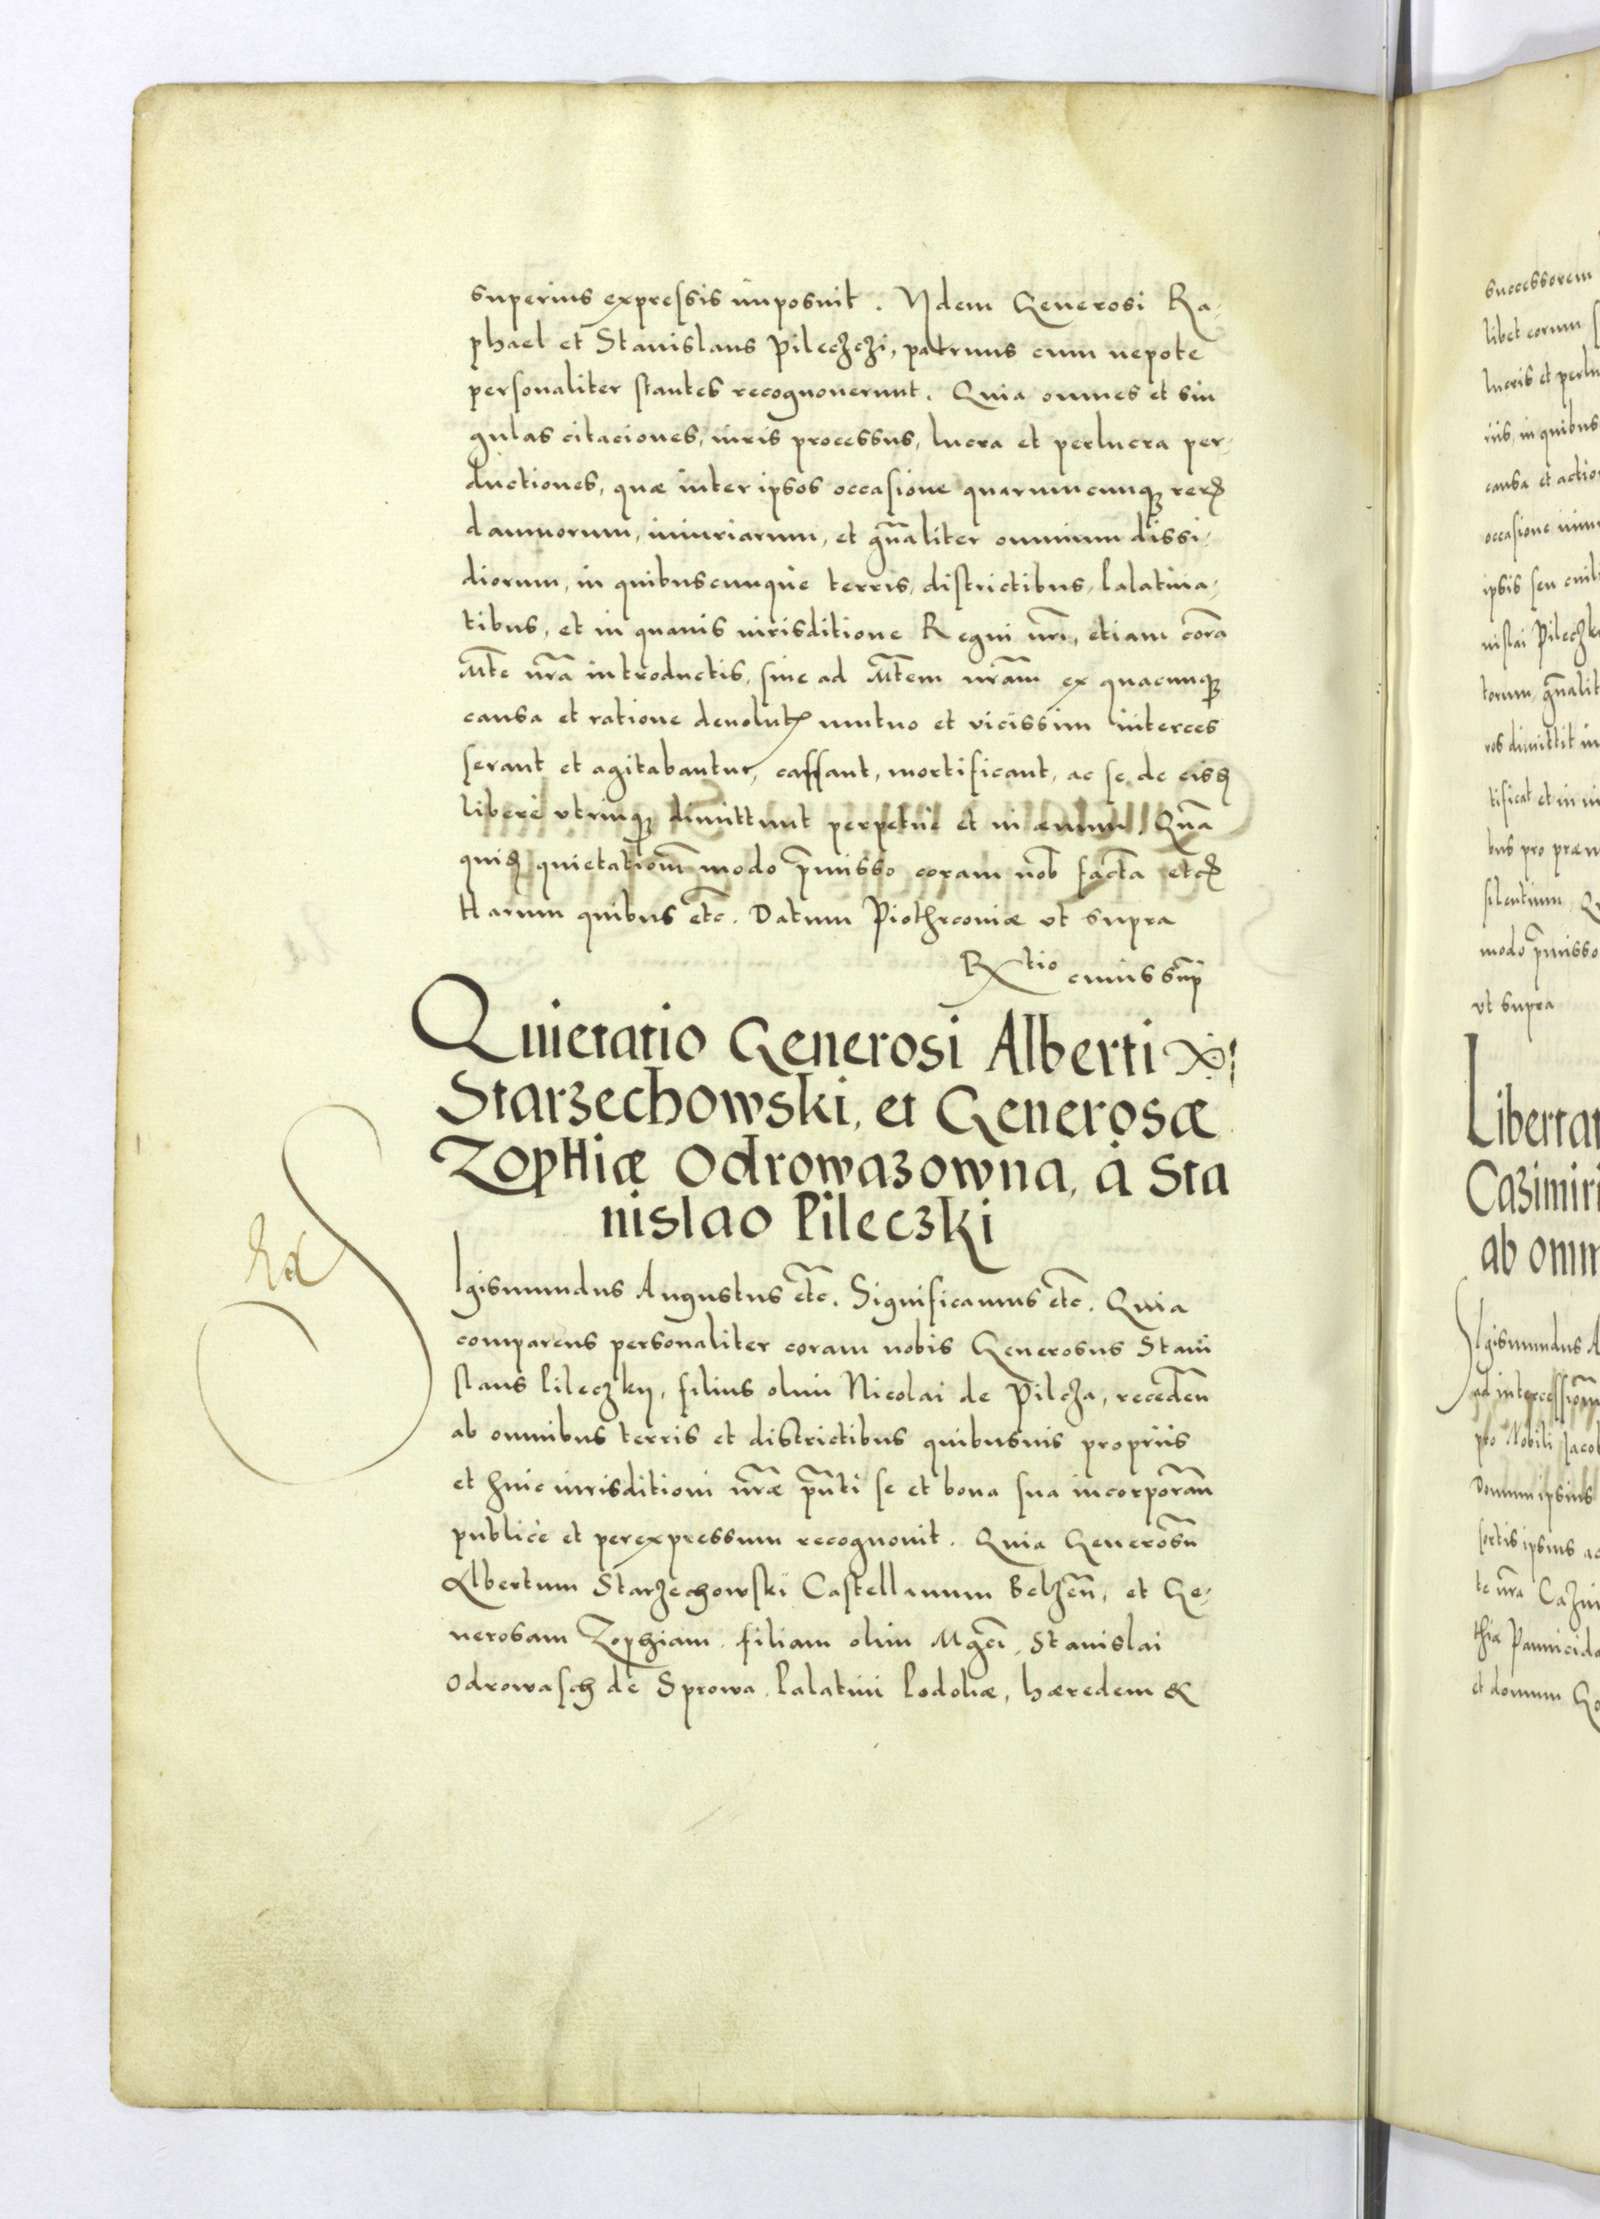 superius expressis imposuit. Ijdem Generosi Ra-
phael et Stanislaus Pileczczi, patruus cum nepote
personaliter stantes recognouerunt. Quia omnes et sin
gulas citaciones, iuris processus, lucra et perlucra per-
ductiones, quæ inter ipsos occasione quarumcunqꝫ rerꝫ
damnorum, iniuriarum, et gn̄aliter omnium dissi-
diorum, in quibuscunque terris, districtibus, Palatina-
tibus, et in quauis iurisditione Regni nr̄i, etiam corā
Mt̄e nr̄a introductis, siue ad Mt̄em nr̄am ex quacunqꝫ
causa et ratione deuolutꝭ mutuo et vicissim interces
serant et agitabantur, cassant, mortificant, ac se de eisꝫ
liberè vtrinqꝫ dimittunt perpetuè et in æuum. Qua
quiꝫ quietationē modo p̄misso coram nob̄ facta etcꝫ
Harum quibus etc̄. Datum Piothrcouiæ vt supra
Rtio cuius sup̄
Quietatio Generosi Alberti
Starzechowski, et Generosæ
Zophiæ Odrowazowna, à Sta
nislao Pileczki
SIgismundus Augustus etc̄. Significamus etc̄. Quia
comparens personaliter coram nobis Generosus Stani
slaus Pileczky, filius olim Nicolai de Pilcza, receden̄
ab omnibus terris et districtibus quibusuis proprijs
et huic iurisditioni nr̄æ pn̄ti se et bona sua incorporan̄
publicè et perexpressum recognouit. Quia Generosū
Albertum Starzechowski Castellanum Belzen̄, et Ge-
nerosam Zophiam filiam olim Mgcī Stanislai
Odrowasch de Sprowa Palatini Podoliæ, hæredem &
successorem
libet eorum
lucris et perlu
rijs, in quibus
causa et actio
ipsis seu
nislai Pileczk
torum, gn̄alit
ros dimittit in
tificat et in
bus pro præm
silentium
modo p̄misso
vt supra
Libertat
Cazimiri
ab omn
SIgismundus A
ad intercessionē
pro Nobili Jacob
Domum ipsius
sortis ipsius ac
te nr̄a Cazim
thiæ Pannicida
et domum